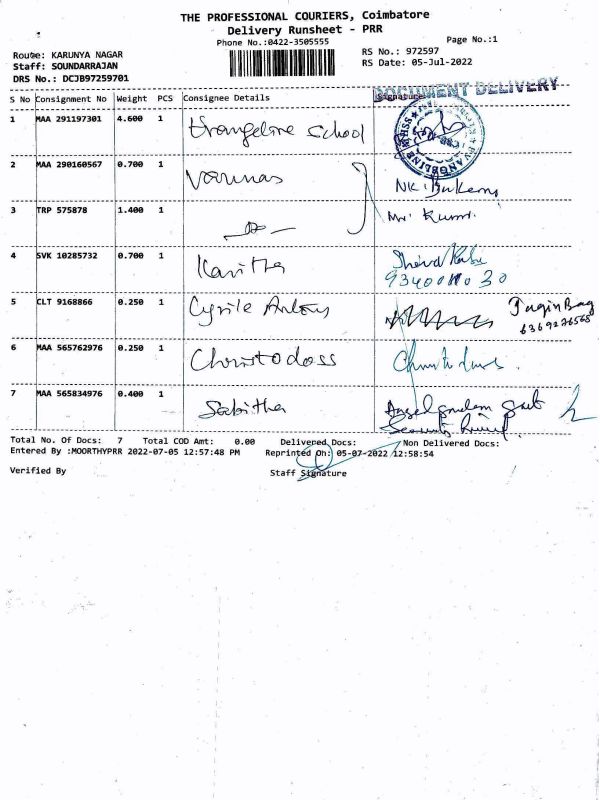 THE PROFESSIONAL COURIERS, Coimbatore
Delivery Runsheet - PRR
Phone No.:0422-3505555
Page No.:1
Route: KARUNYA NAGAR
RS No.: 972597
Staff: SOUNDARRAJAN
RS Date: 05-Jul-2022
DRS No.: DCJB97259701
DOCUMENT DELIVERY
S No Consignment No Weight PCS Consignee Details Signature
1 MAA 291197301 4.600 1 School
2 MAA 290160567 0.700 1
3 TRP 575878 1.400 1 Mr. Kumar.
4 SVK 10285732 0.700 1 Kavitha
5 CLT 9168866 0.250 1 Cyrile Antony
6 MAA 565762976 0.250 1 Christodoss
7 MAA 565834976 0.400 1 Sabitha
Total No. Of Docs: 7 Total COD Amt: 0.00 Delivered Docs: Non Delivered Docs:
Entered By :MOORTHYPRR 2022-07-05 12:57:48 PM Reprinted On: 05-07-2022 12:58:54
Verified By Staff Signature